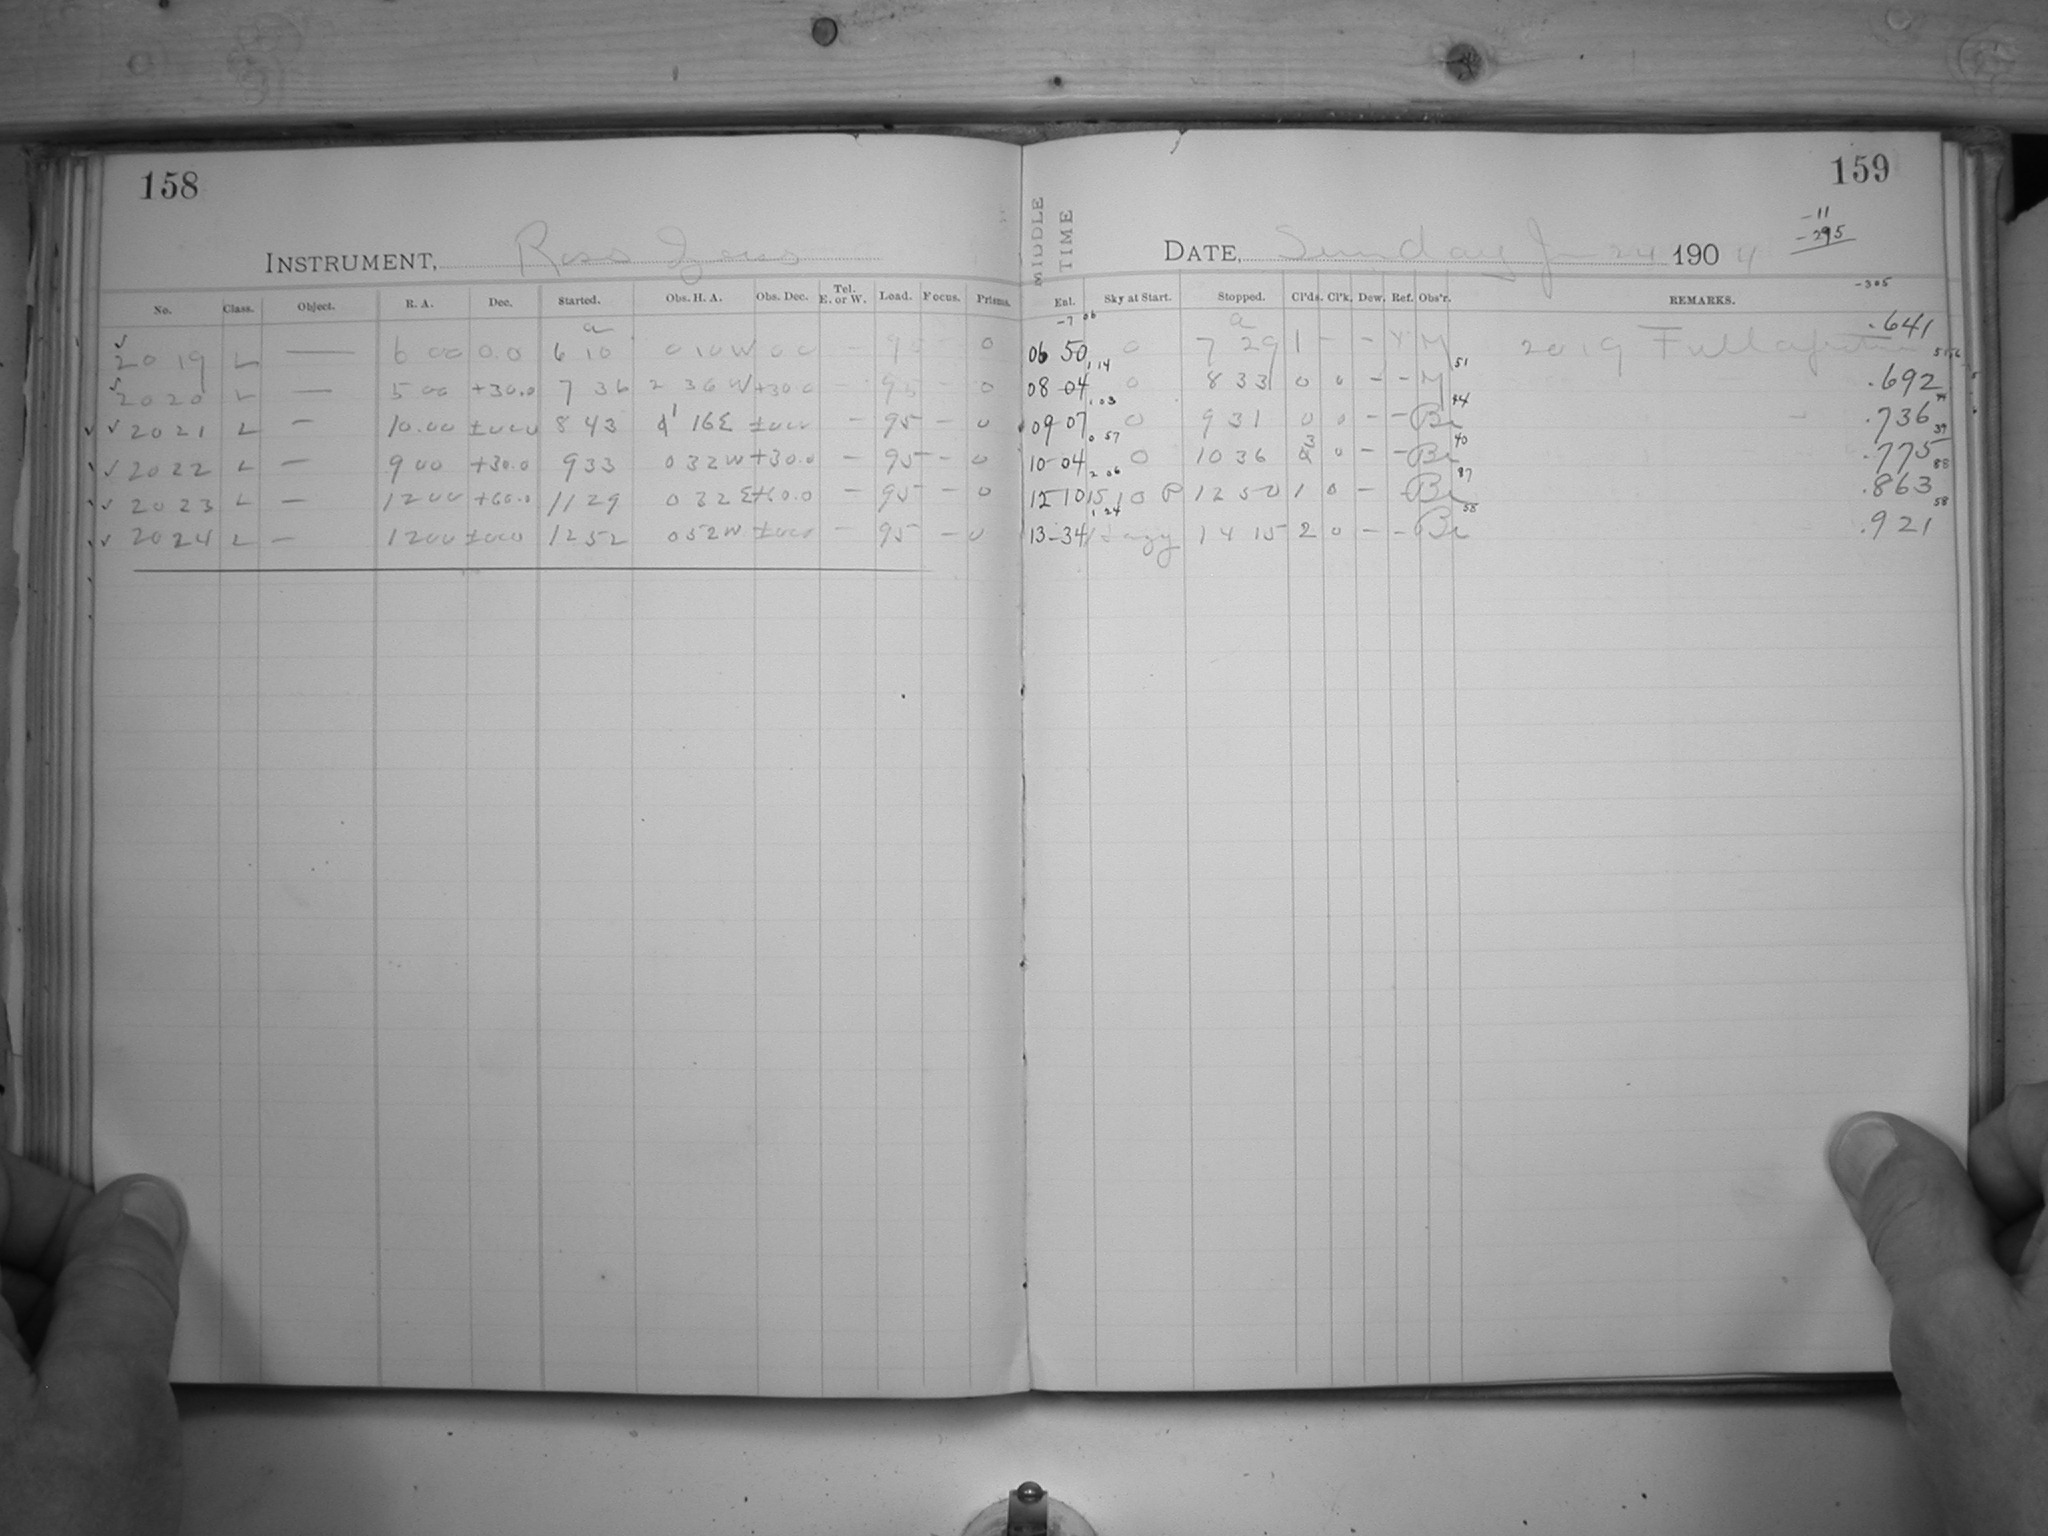 158
159
INSTRUMENT, Ross Zeiss
MIDDLE TIME
DATE, Sunday 24 1904
-11
-295
-305
No. Class. Object. R. A. Dec. Started. Obs. H. A. Obs. Dec. Tel. E. or W. Load. Focus. Prisms. Enl. Sky at Start. Stopped. Cl'ds. Cl'k. Dew. Ref. Obs'r. REMARKS.
a -7 06 a
2019 L — 6 00 0.0 6 10 0 10 W 0 0 - 95 - 0 06 50 0 7 29 1 - - M 2019 Full .641
2020 L — 5 00 +30.0 7 36 2 36 W +30.0 - 95 - 0 08-04 0 8 33 0 0 - - M .692
2021 L — 10.00 ±000 8 43 1 16 E ±000 - 95 - 0 09-07 0 9 31 0 0 - - Br .736
2022 L — 9 00 +30.0 9 33 0 32 W +30.0 - 95 - 0 10-04 0 10 36 3 0 - - Br .775
2023 L — 12 00 +60.0 11 29 0 32 E +60.0 - 95 - 0 12 10 P 12 50 1 0 - - Br .863
2024 L — 12 00 ±000 12 52 0 52 W ±000 - 95 - 0 13-34 Hazy 14 15 2 0 - - Br .921